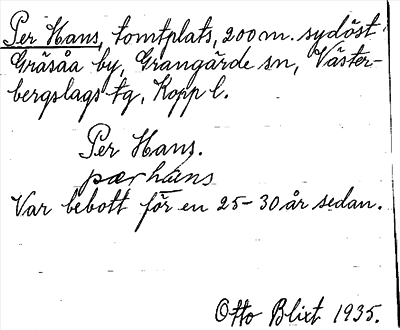 Per Hans, tomtplats, 200 m. sydöst
Gräsåa by, Grangärde sn, Väster-
bergslags tg, Kopp l.
Per Hans.
pær hans
Var bebott för en 25-30 år sedan.
Otto Blixt 1935.